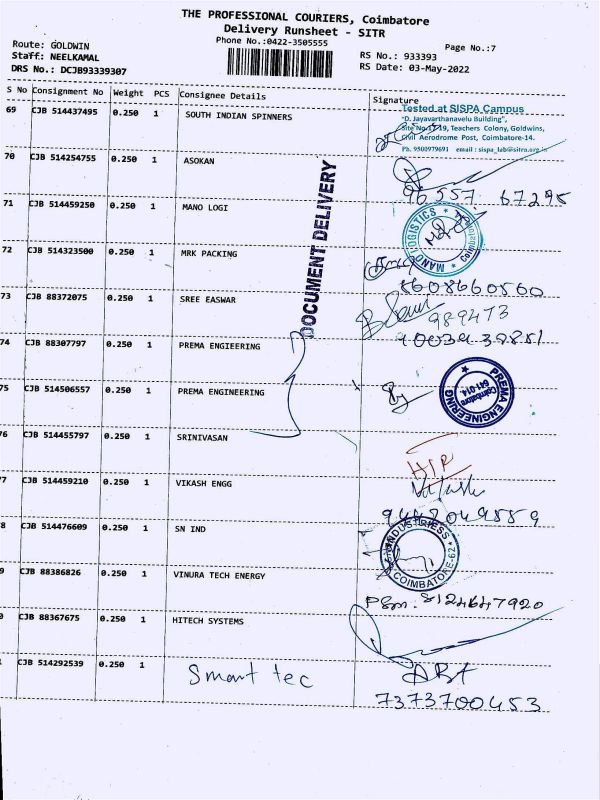 THE PROFESSIONAL COURIERS, Coimbatore
Delivery Runsheet - SITR
Phone No.:0422-3505555
Page No.:7
Route: GOLDWIN
Staff: NEELKAMAL
DRS No.: DCJB93339307
RS No.: 933393
RS Date: 03-May-2022
S No Consignment No Weight PCS Consignee Details Signature
69 CJB 514437495 0.250 1 SOUTH INDIAN SPINNERS
Tested at SISPA Campus
"D. Jayavarthanavelu Building",
Site No.17-19, Teachers Colony, Goldwins,
Civil Aerodrome Post, Coimbatore-14.
Ph. 9500979691 email : sispa_lab@sitra.org.in
70 CJB 514254755 0.250 1 ASOKAN
96557 67295
71 CJB 514459250 0.250 1 MANO LOGI
MANO LOGISTICS
DOCUMENT DELIVERY
72 CJB 514323500 0.250 1 MRK PACKING
8608660560
73 CJB 88372075 0.250 1 SREE EASWAR
989473
9003932881
74 CJB 88307797 0.250 1 PREMA ENGIEERING
75 CJB 514506557 0.250 1 PREMA ENGINEERING
PREMA ENGINEERING
Coimbatore
641-014.
76 CJB 514455797 0.250 1 SRINIVASAN
77 CJB 514459210 0.250 1 VIKASH ENGG
9442049559
8 CJB 514476609 0.250 1 SN IND
INDUSTRIESS
COIMBATORE-62
9 CJB 88386826 0.250 1 VINURA TECH ENERGY
8124647920
0 CJB 88367675 0.250 1 HITECH SYSTEMS
CJB 514292539 0.250 1 Smart tec
7373700453